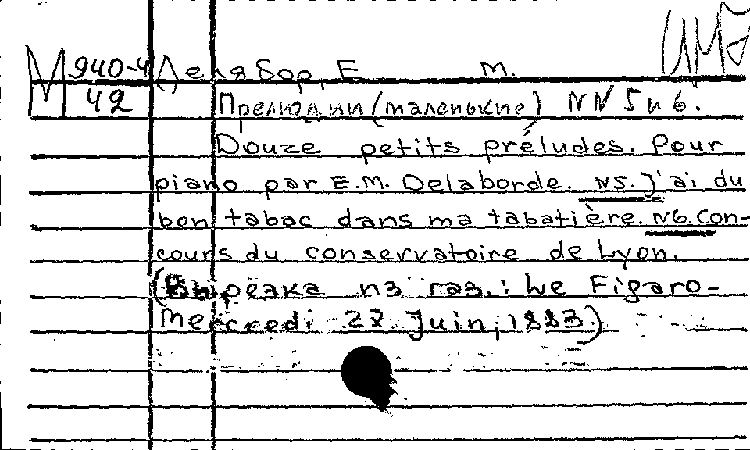 М 940-4 Делябор, Е. М.
42 Прелюдии (маленькие) NN 5 и 6.
Douze petits préludes. Pour
piano par E.M. Delaborde. N5. J'ai du
bon tabac dans ma tabatière. N6. Con-
cours du conservatoire de Lyon.
(Вырезка из газ.: Le Figaro-
Mercredi 27 Juin, 1883)